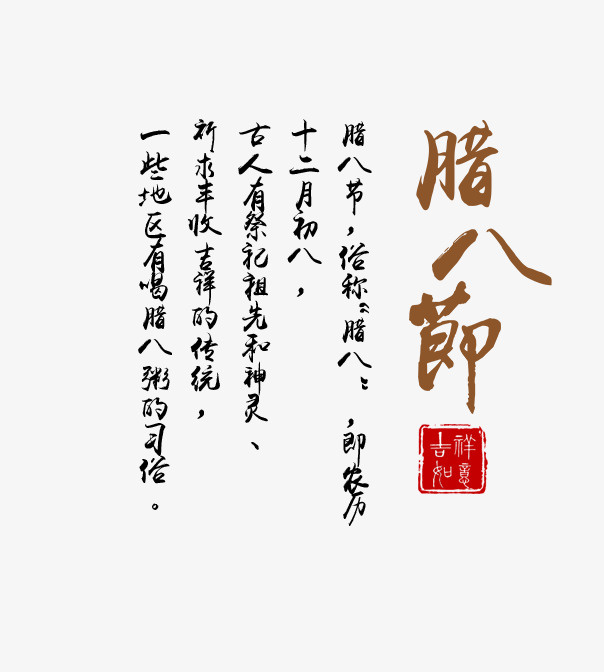 腊八節
吉祥如意
腊八节，俗称“腊八”，即农历
十二月初八，
古人有祭祀祖先和神灵、
祈求丰收吉祥的传统，
一些地区有喝腊八粥的习俗。